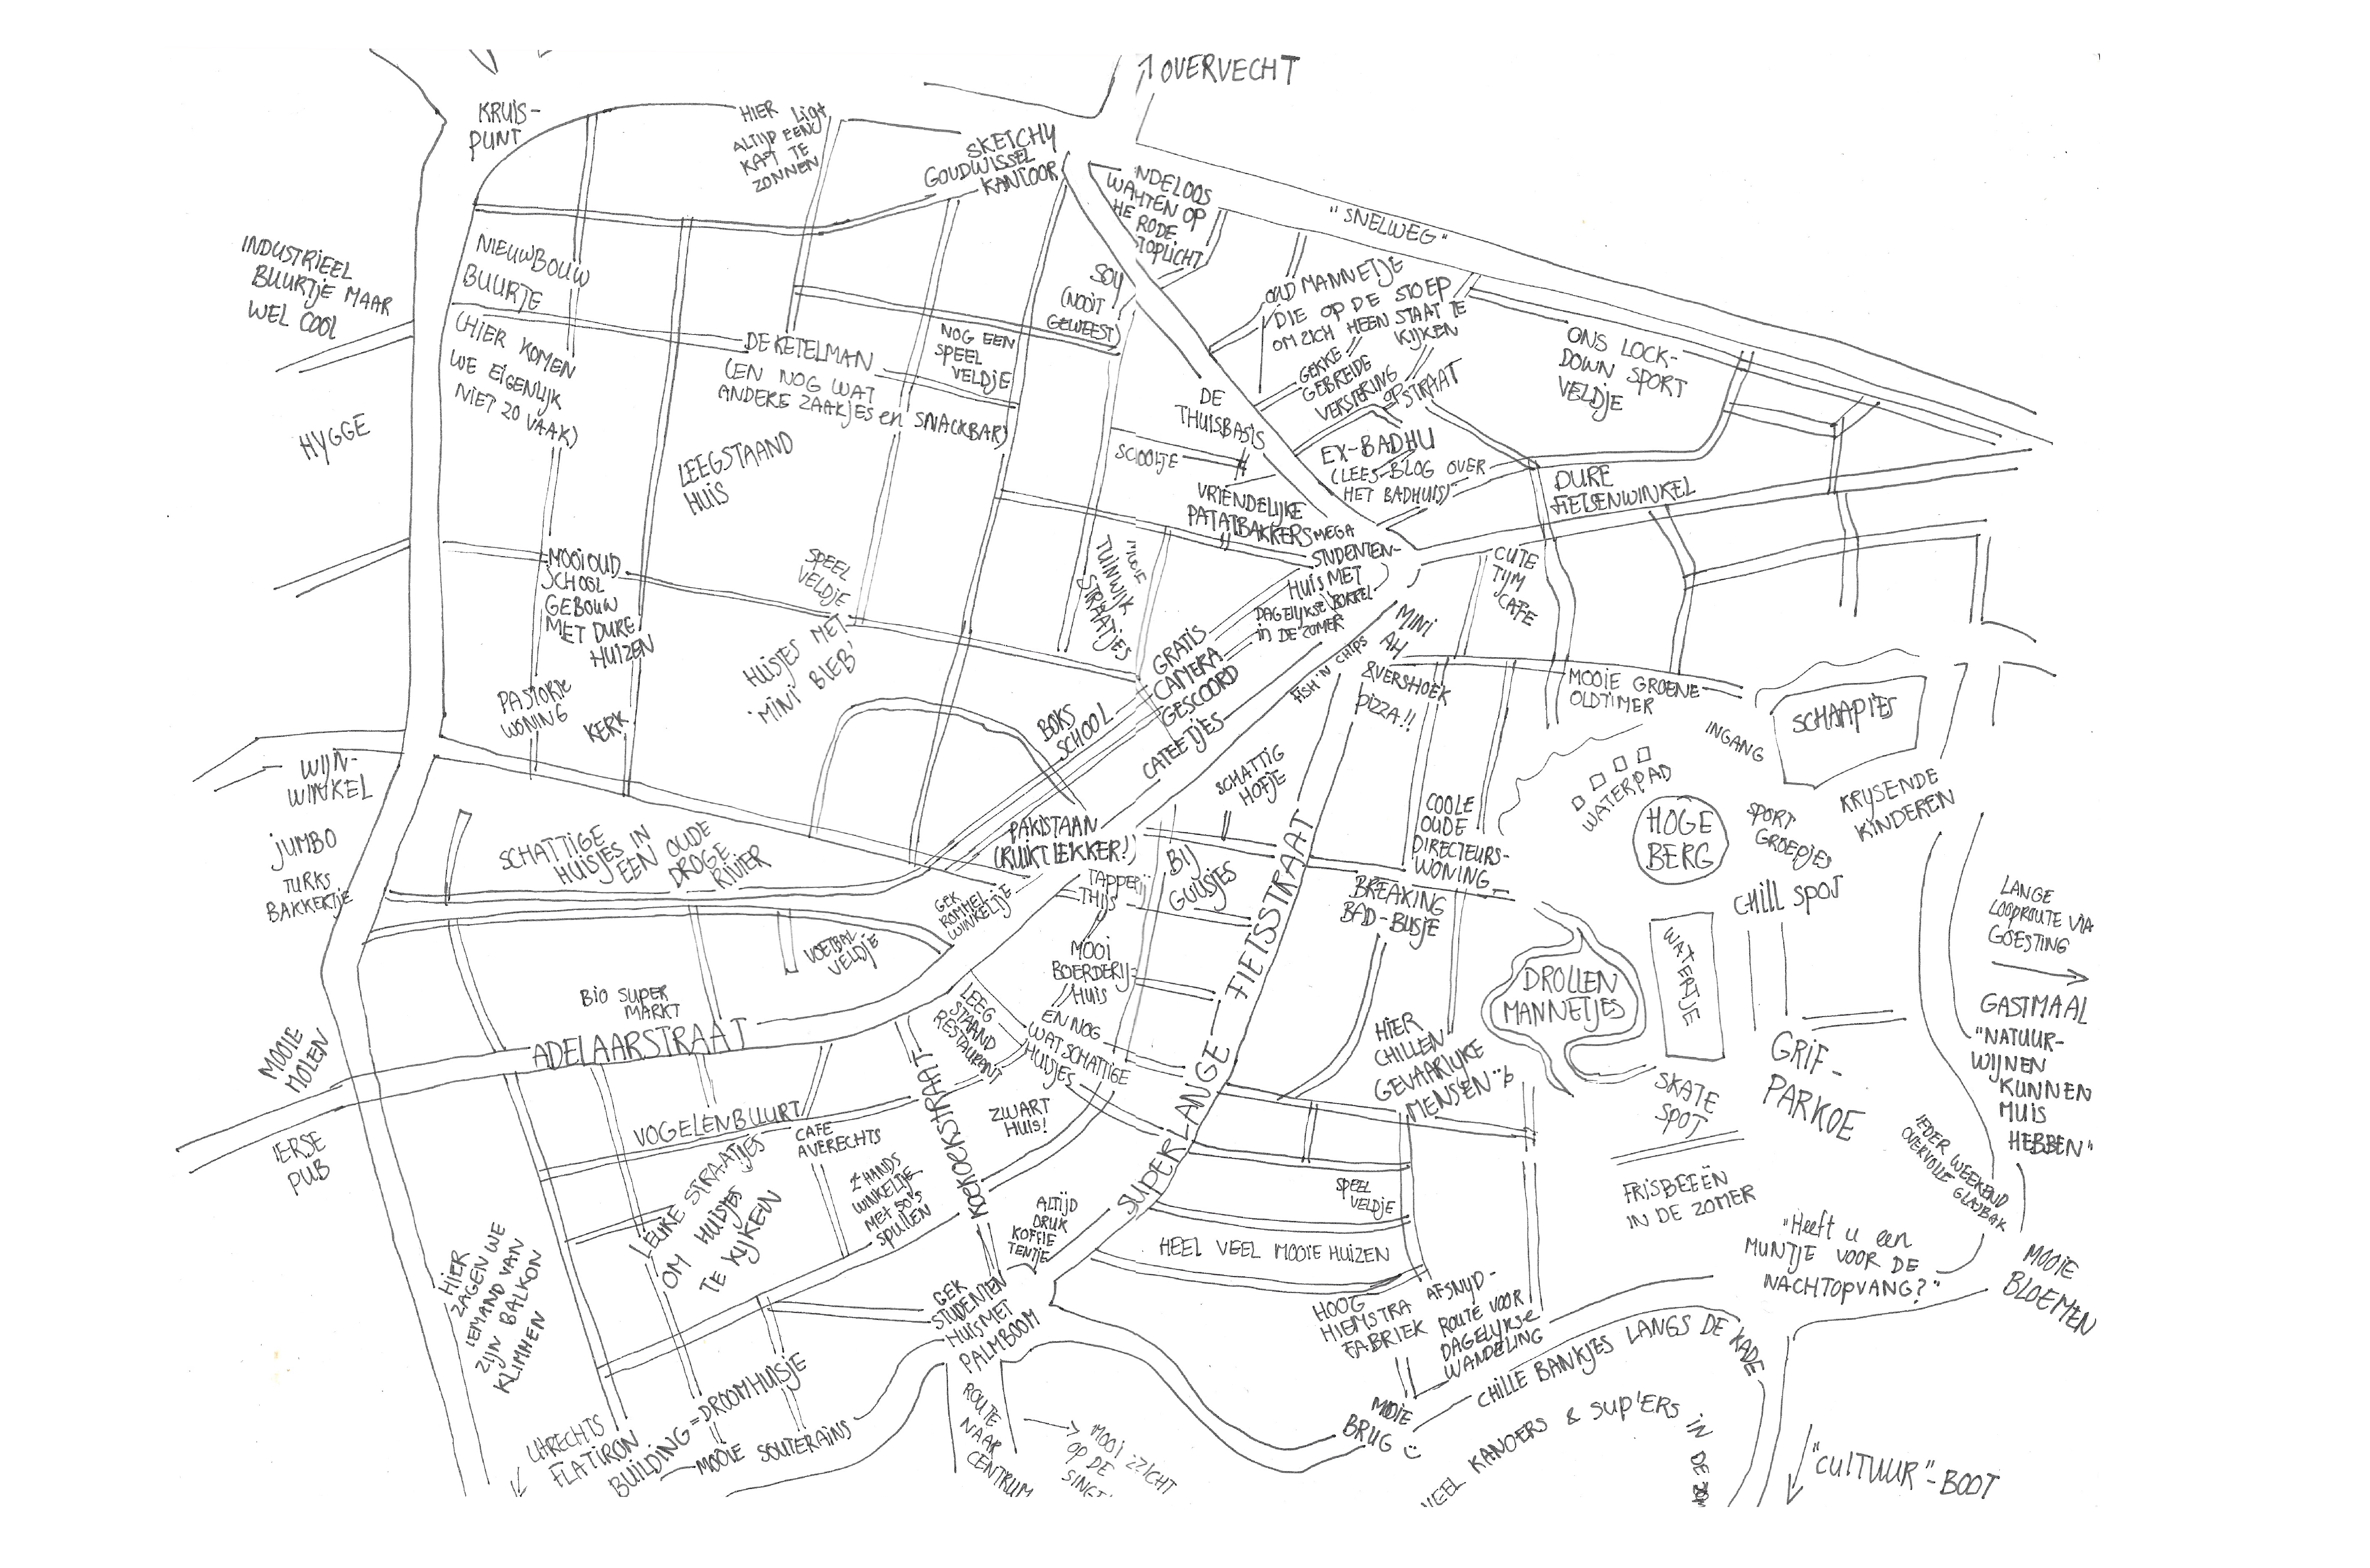 ↑ OVERVECHT
KRUIS-
PUNT
HIER Ligt
ALTIJD EEN
KAT TE
ZONNEN
SKETCHY
GOUDWISSEL
KANTOOR
NDELOOS
WACHTEN OP
HE RODE
STOPLICHT
"SNELWEG"
INDUSTRIEEL
BUURTJE MAAR
WEL COOL
NIEUWBOUW
BUURTJE
(HIER KOMEN
WE EIGENLIJK
NIET ZO VAAK)
HYGGE
DE KETELMAN
(EN NOG WAT
ANDERE ZAAKJES en SNACKBAR)
NOG EEN
SPEEL
VELDJE
SOY
(NOOIT
GEWEEST)
OUD MANNETJE
DIE OP DE STOEP
OM ZICH HEEN STAAT TE
KIJKEN
GEKKE
GEBREIDE
VERSIERING
OP STRAAT
ONS LOCK-
DOWN SPORT
VELDJE
DE
THUISBASIS
SCHOOLTJE
EX-BADHU
(LEES BLOG OVER
HET BADHUIS)
DURE
FIETSENWINKEL
LEEGSTAAND
HUIS
VRIENDELIJKE
PATATBAKKERS
MEGA
STUDENTEN-
HUIS MET
DAGELIJKSE BORREL
in DE ZOMER
CUTE
TIJM
CAFE
MOOI OUD
SCHOOL
GEBOUW
MET DURE
HUIZEN
SPEEL
VELDJE
MOOIE
TUINWIJK
STRAATJES
HUISJES MET
'MINI BIEB'
GRATIS
CAMERA
GESCOORD
CAFEETJES
FISH 'N CHIPS
MINI
AH
& VERSHOEK
PIZZA!!
MOOIE GROENE
OLDTIMER
INGANG
SCHAAPJES
PASTORIE
WONING
KERK
BOKS
SCHOOL
SCHATTIG
HOFJE
WATERPAD
HOGE
BERG
SPORT
GROEPJES
KRIJSENDE
KINDEREN
CHILL SPOT
WIJN-
WINKEL
JUMBO
TURKS
BAKKERTJE
SCHATTIGE
HUISJES IN
EEN OUDE
DROGE
RIVIER
PAKISTAAN
(RUIKT LEKKER!)
TAPPERIJ
THIJS
BIJ
GUUSJES
COOLE
OUDE
DIRECTEURS-
WONING
BREAKING
BAD-BUSJE
LANGE
LOOPROUTE VIA
GOESTING
GEK
ROMMEL
WINKELTJE
VOETBAL
VELDJE
MOOI
BOERDERIJ-
HUIS
EN NOG
WAT SCHATTIGE
HUISJES
DROLLEN
MANNETJES
WATERTJE
GASTMAAL
"NATUUR-
WIJNEN
KUNNEN
MUIS
HEBBEN"
BIO SUPER
MARKT
ADELAARSTRAAT
LEEG
STAAND
RESTAURANT
SUPER-LANGE-FIETSSTRAAT
HIER
CHILLEN
GEVAARLIJKE
MENSEN
GRIF-
PARKOE
SKATE
SPOT
MOOIE
MOLEN
IERSE
PUB
VOGELENBUURT
CAFE
AVERECHTS
KOEKOEKSTRAAT
ZWART
HUIS!
IEDER WEEKEND
OVERVOLLE GLASBAK
LEUKE STRAATJES
OM HUISJES
TE KIJKEN
2e HANDS
WINKELTJE
met 50's
SPULLEN
ALTIJD
DRUK
KOFFIE
TENTJE
SPEEL
VELDJE
HEEL VEEL MOOIE HUIZEN
FRISBEEËN
IN DE ZOMER
"Heeft u een
MUNTJE VOOR DE
NACHTOPVANG?"
MOOIE
BLOEMEN
HIER
ZAGEN WE
IEMAND VAN
ZIJN BALKON
KLIMMEN
GEK
STUDENTEN
HUIS MET
PALMBOOM
HOOG
HIEMSTRA
FABRIEK
AFSNIJD-
ROUTE VOOR
DAGELIJKSE
WANDELING
CHILLE BANKJES LANGS DE KADE
MOOIE
BRUG
UTRECHTS
FLATIRON
BUILDING = DROOMHUISJE
MOOIE SOUTERAINS
ROUTE
NAAR
CENTRUM
MOOI
OP DE
VEEL KANOERS & SUP'ERS IN DE
"CULTUUR"-BOOT